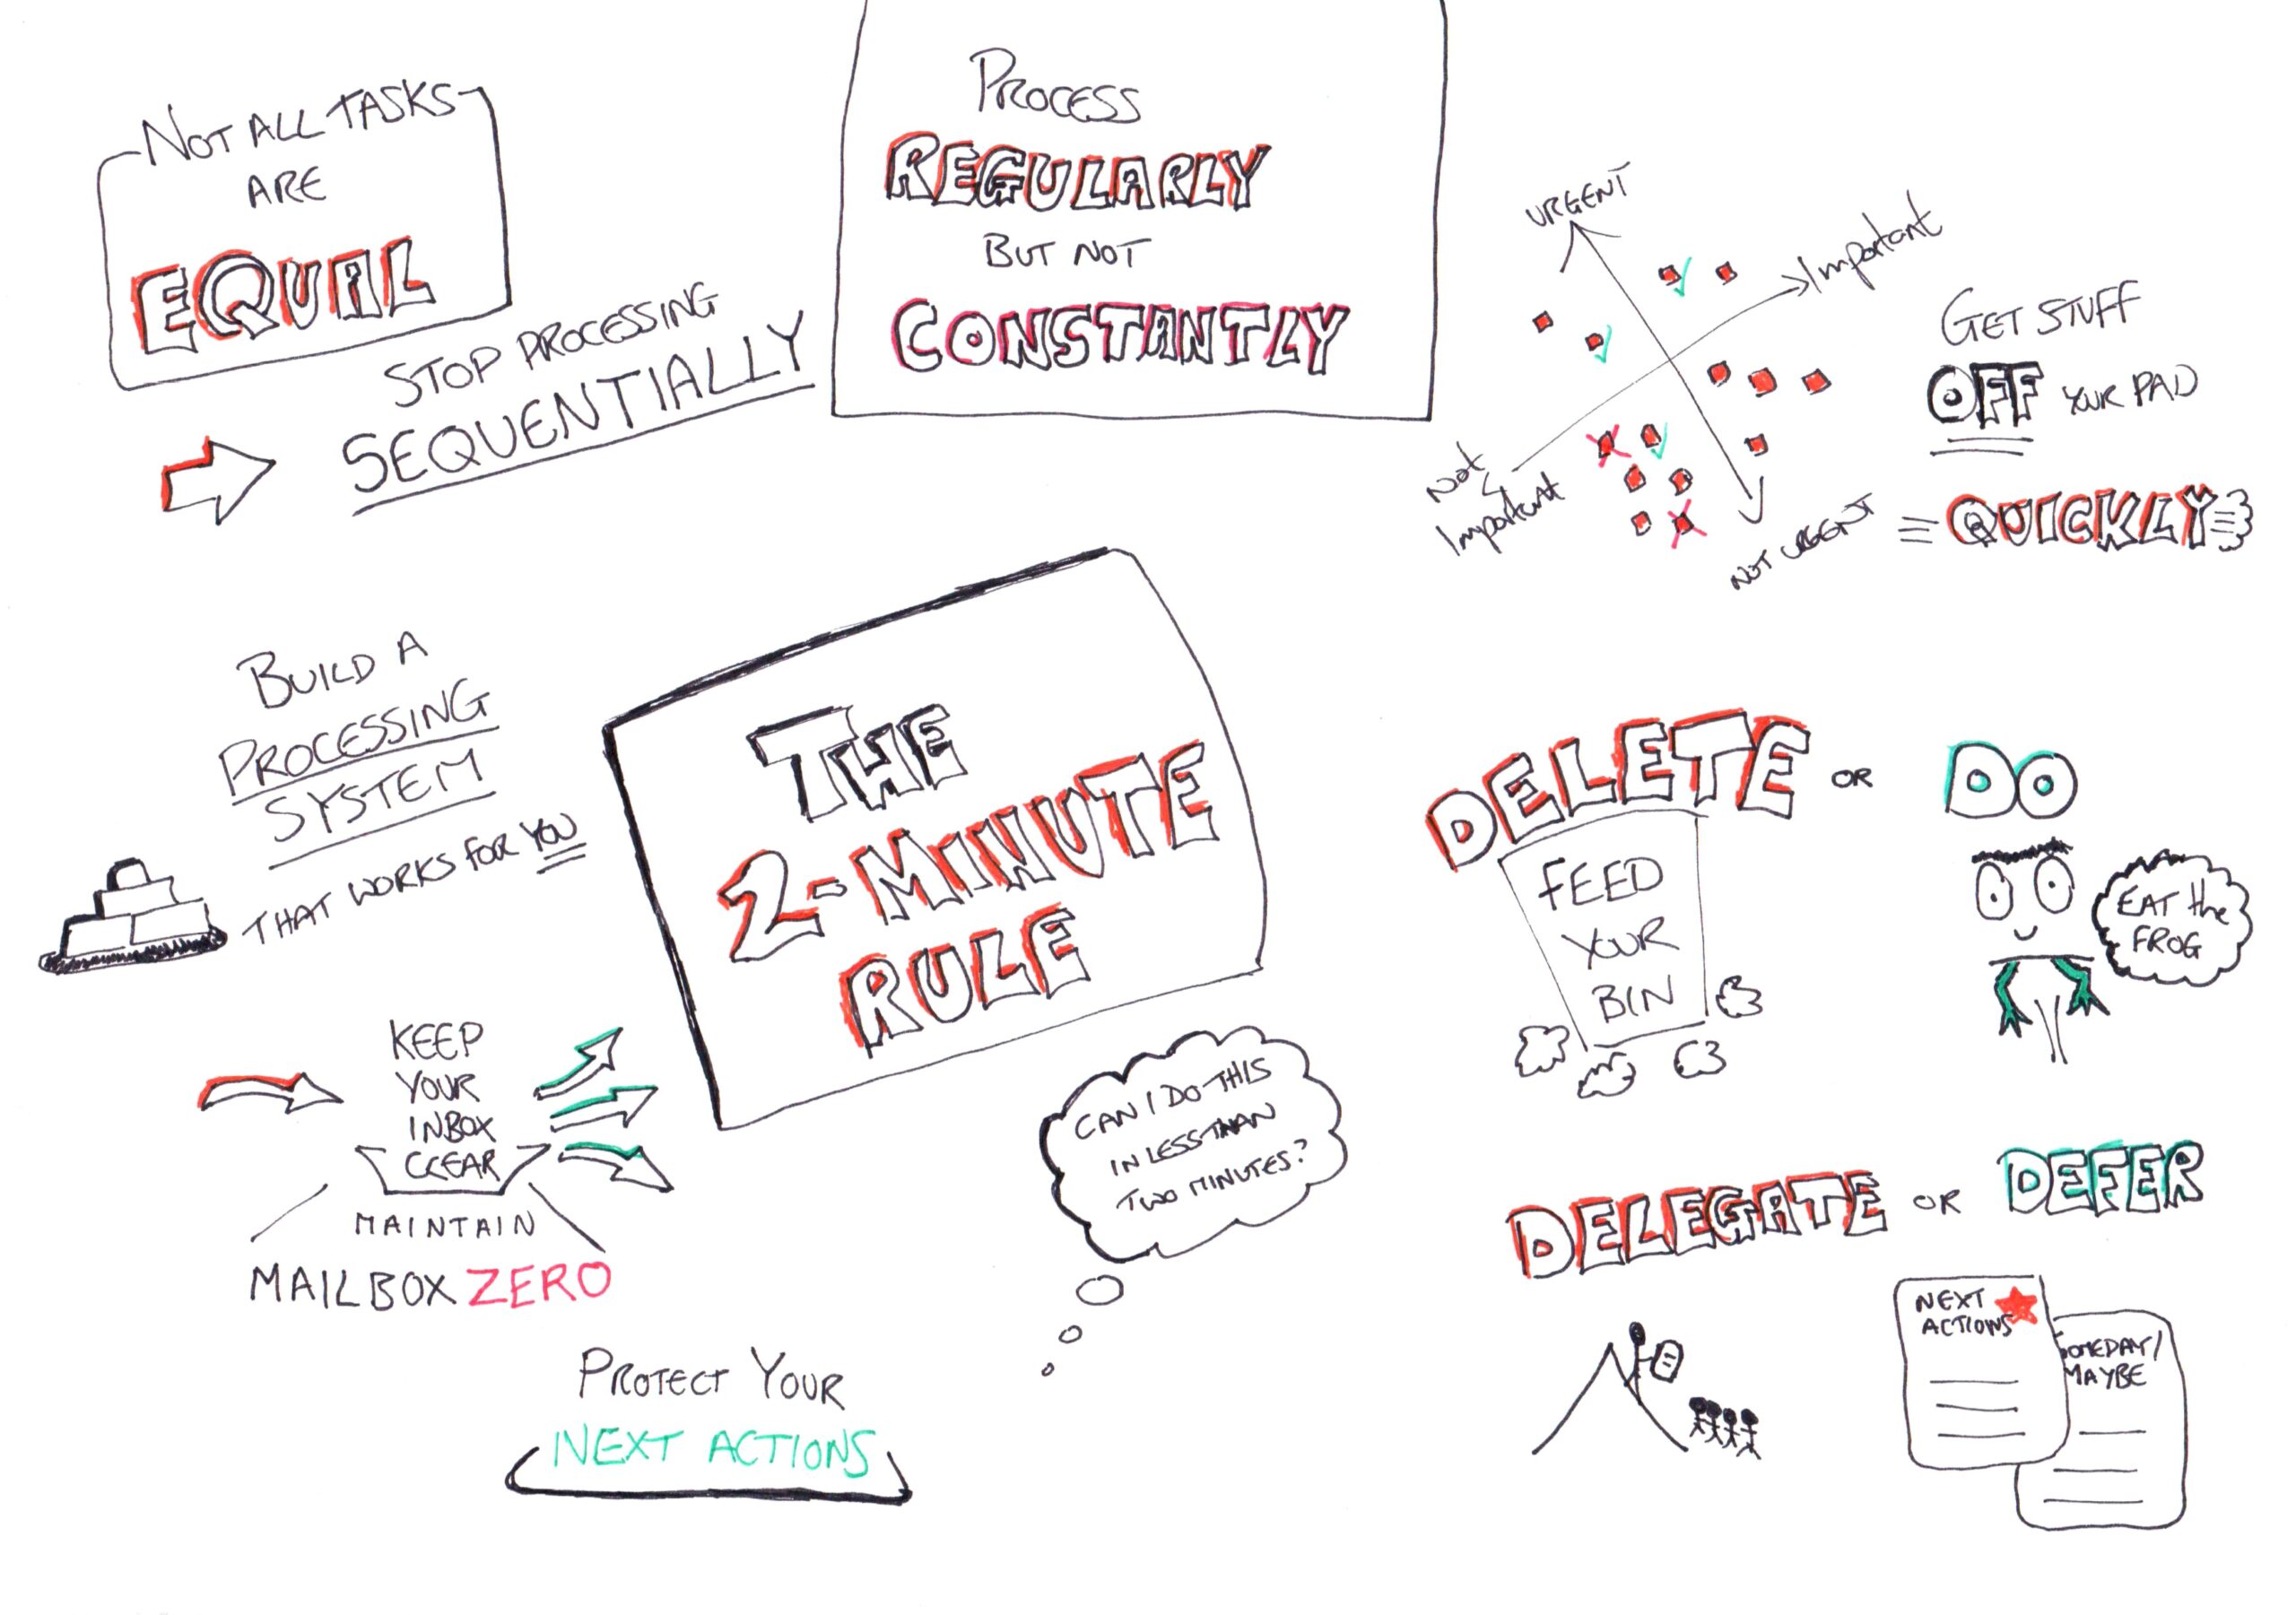 NOT ALL TASKS
ARE
EQUAL
STOP PROCESSING
SEQUENTIALLY
PROCESS
REGULARLY
BUT NOT
CONSTANTLY
URGENT
Important
Not
Important
NOT URGENT
GET STUFF
OFF YOUR PAD
QUICKLY
BUILD A
PROCESSING
SYSTEM
THAT WORKS FOR YOU
THE
2-MINUTE
RULE
CAN I DO THIS
IN LESS THAN
TWO MINUTES?
KEEP
YOUR
INBOX
CLEAR
MAINTAIN
MAILBOX ZERO
PROTECT YOUR
NEXT ACTIONS
DELETE OR DO
FEED
YOUR
BIN
EAT the
FROG
DELEGATE OR DEFER
NEXT
ACTIONS
SOMEDAY/
MAYBE